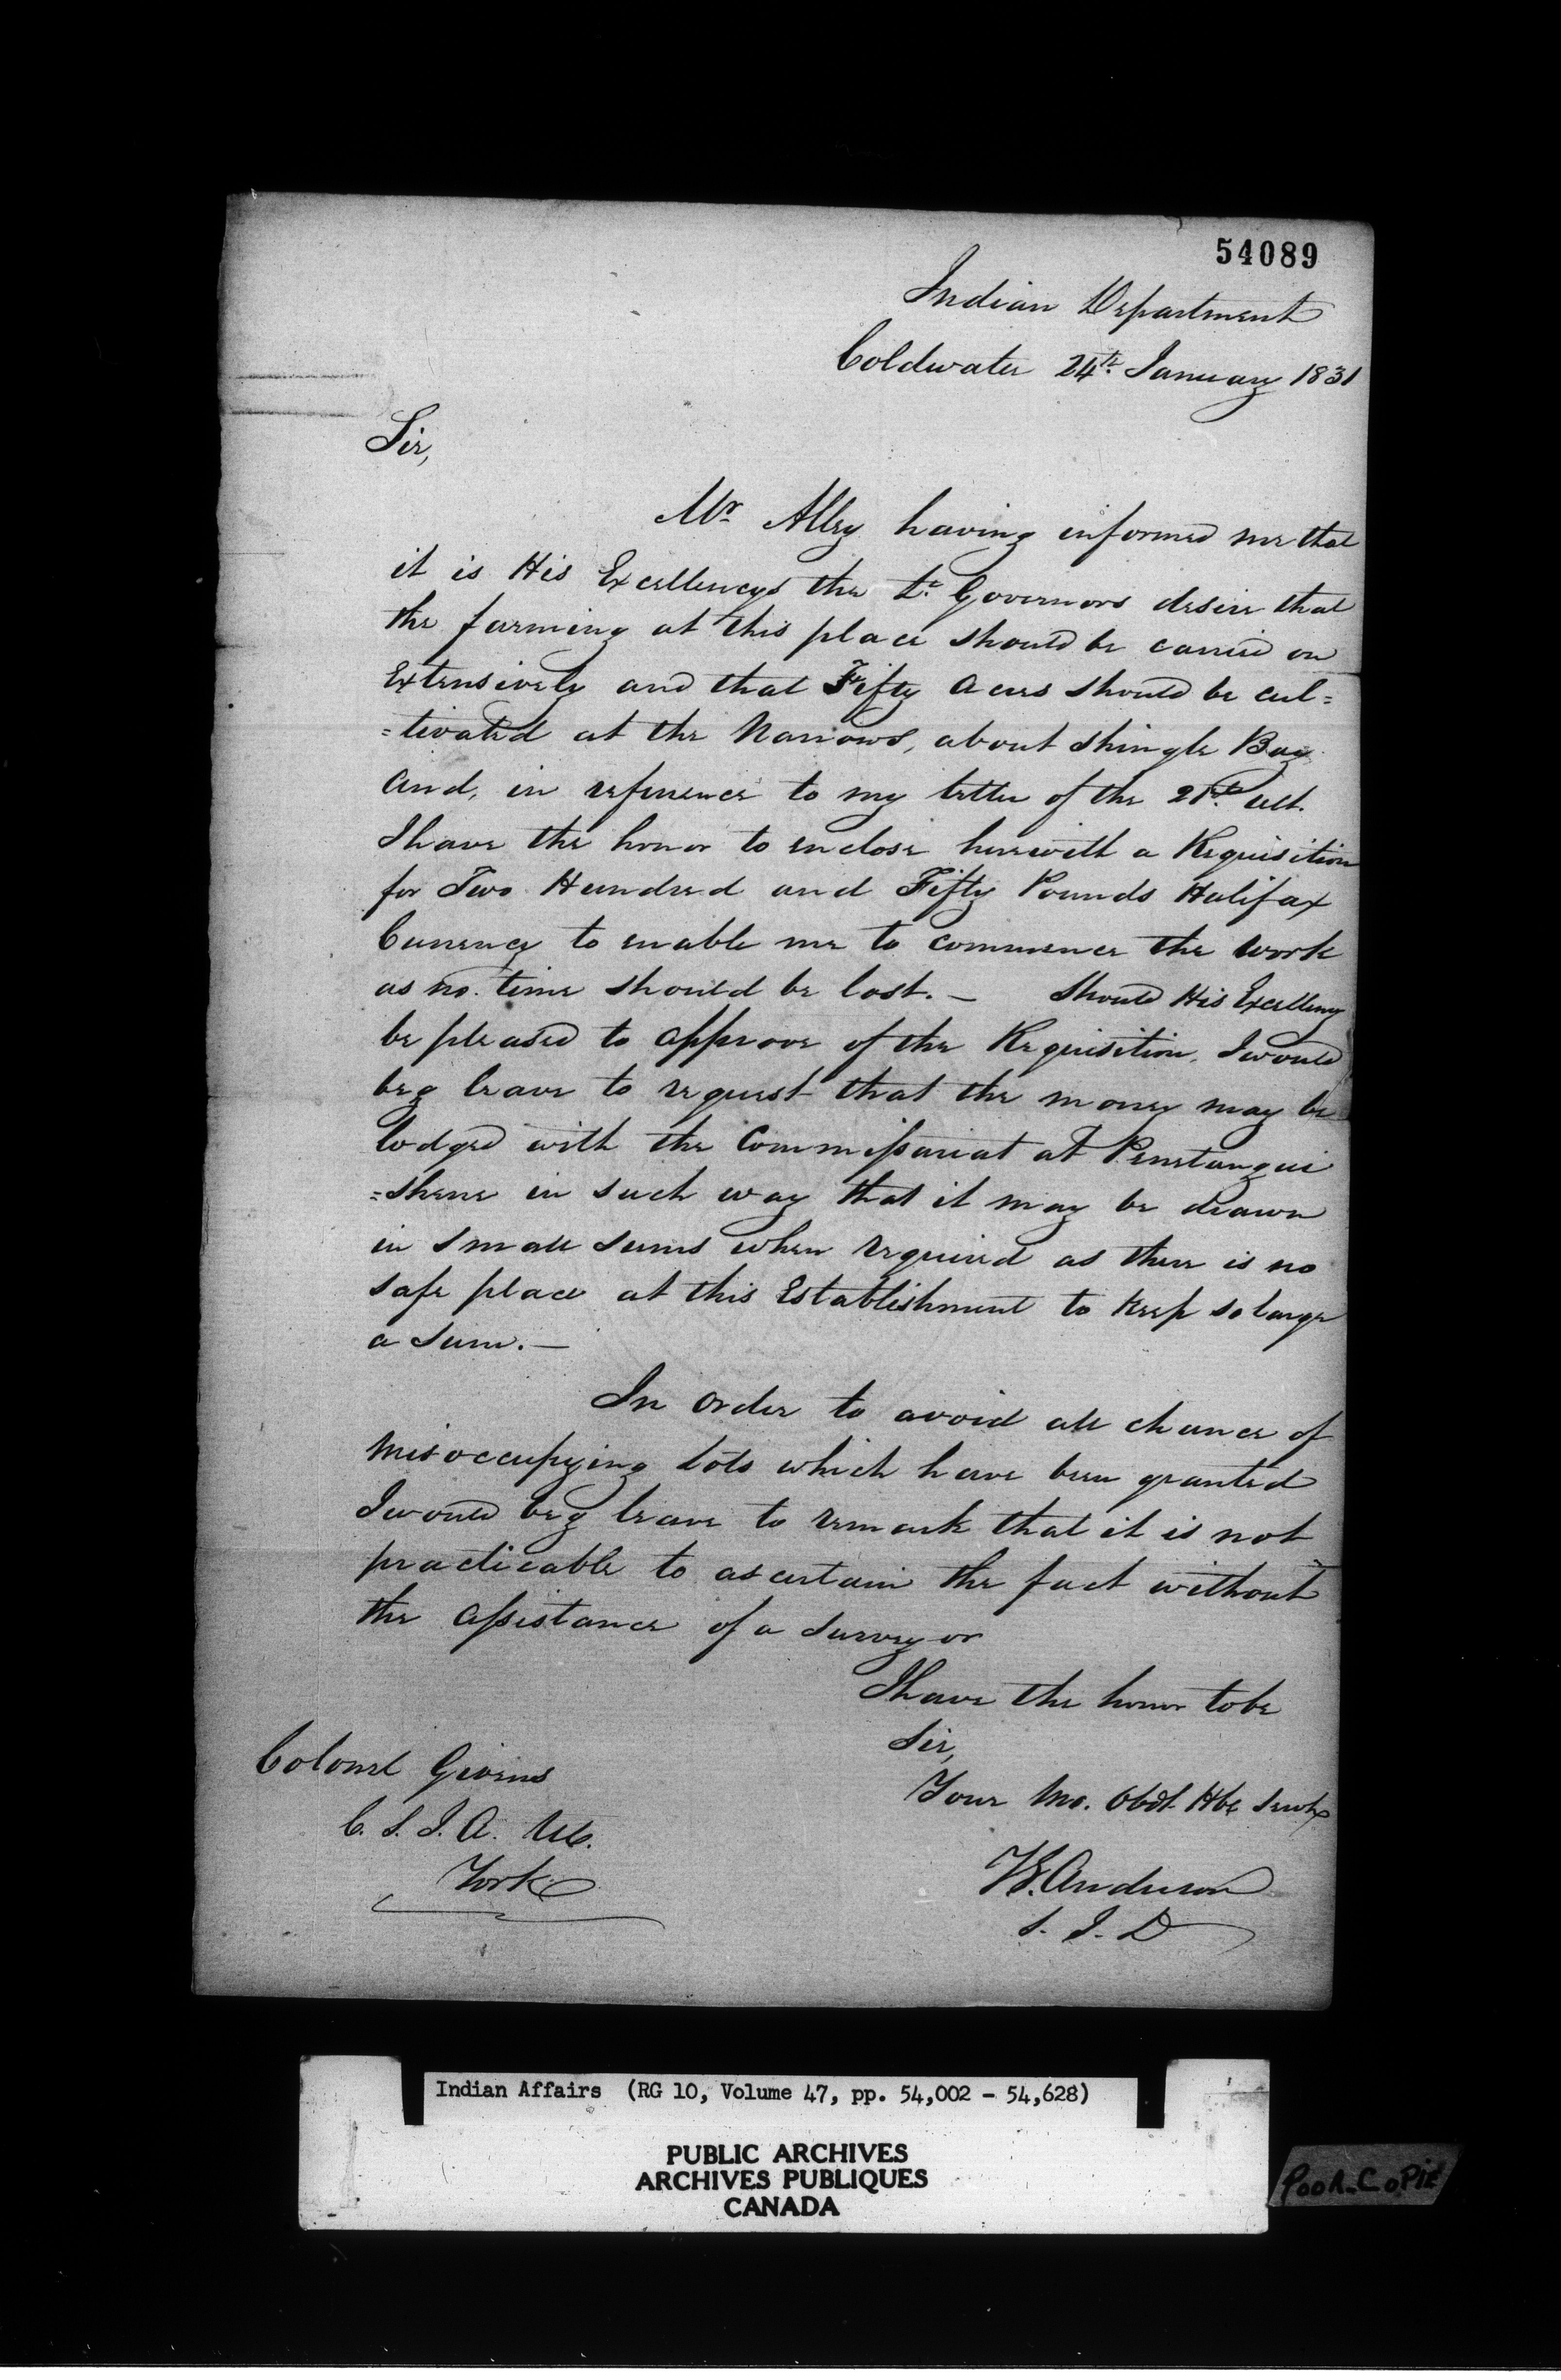 54089
Indian Department
Coldwater 24th January 1831
Sir,
Mr Alley having informed me that
it is His Excellencys the Lt Governors desire that
the farming at this place should be carried on
Extensively and that Fifty Acres should be cul=
=tivated at the Narrows, about Shingle Bay
And, in reference to my letter of the 21st ult.
I have the honor to enclose herewith a Requisition
for Two Hundred and Fifty Pounds Halifax
Currency to enable me to commence the work
as no time should be lost. — Should His Excellency
be pleased to approve of the Requisition, I would
beg leave to request that the money may be
lodged with the Commissariat at Penetangui
=shene in such way that it may be drawn
in small sums when required as there is no
safe place at this Establishment to keep so large
a sum. —
In order to avoid all chance of
misoccupying lots which have been granted
I would beg leave to remark that it is not
practicable to ascertain the fact without
the assistance of a surveyor
I have the honor to be
Sir,
Your Mo. Obdt Hbe Servt
Colonel Givens
C. S. I. A. UC.
York
Anderson
S. I. D
Indian Affairs (RG 10, Volume 47, pp. 54,002 - 54,628)
PUBLIC ARCHIVES
ARCHIVES PUBLIQUES
CANADA
POOR COPIE